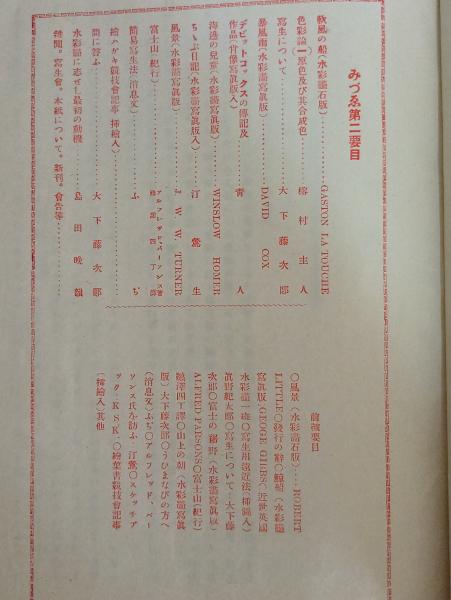 みづゑ第二要目
軟風の船(水彩畵石版)……GASTON LA TOUCHE
色彩論(一原色及び其合成色)……榕村主人
寫生について……大下藤次郎
暴風雨(水彩畵寫眞版)……DAVID COX
デビットコックスの傳記及
作品(肖像寫眞版入)……青人
海邊の兒童(水彩畵寫眞版)……WINSLOW HOMER
ちゝぶ日記(水彩畵寫眞版入)……汀鶯生
風景(水彩畵寫眞版)……J. W. W. TURNER
富士山(紀行)……アルフレッド、パーソンス著
鵜澤四丁譯
簡易寫生法(消息文)……ふぢ
繪ハガキ競技會記事(挿繪入)
問に答ふ……大下藤次郎
水彩畵に志せし最初の動機……島田晩韻
雜聞。寫生會。本紙について。新刊。會告等……
前號要目
〇風景(水彩畵石版)……ROBERT
LITTLE〇發行の辭〇鯨舗(水彩畵
寫眞版)GEOGE GIBBS〇近世英國
水彩畵一斑〇寫生用遠近法(挿圖入)
眞野紀太郎〇寫生について・大下藤
次郎〇富士の裾野(水彩畵寫眞版)
ALFRED PARSONS〇富士山(紀行)
鵜澤四丁譯〇山上の朝(水彩畵寫眞
版)大下藤次郎〇うひまなびの方へ
(消息文)ふぢ〇アルフレッド、パー
ソンス氏を訪ふ・汀鶯〇スケッチブ
ック・K. S. K.〇繪葉書競技會記事
(挿繪入)其他